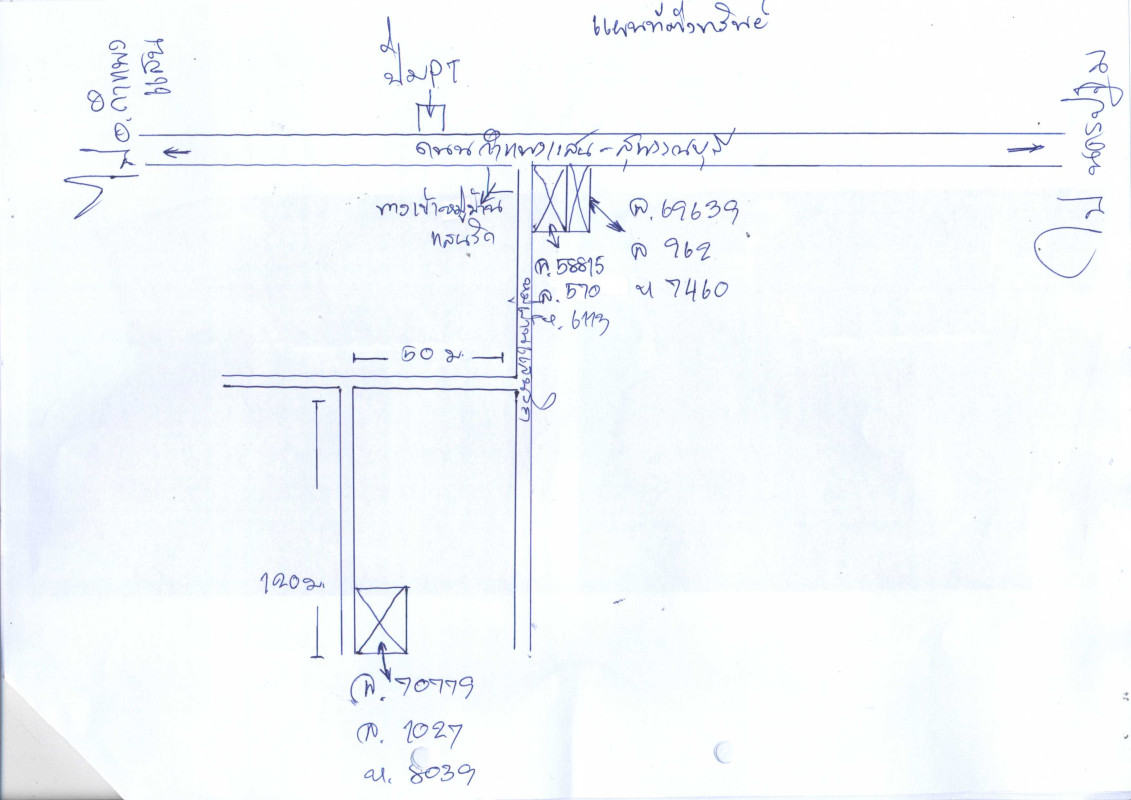 แผนที่ตั้งทรัพย์
ปั๊ม PT
ไป
อ.กำแพง
แสน
ถนนกำแพงแสน - สุพรรณบุรี
ไป
นครปฐม
ทางเข้าหมู่บ้าน
ฉ. 69639
ล 962
ห 7460
ฉ. 58815
ล. 570
ห. 6113
50 ม.
120 ม.
ฉ. 70779
ล. 1027
ห. 8039